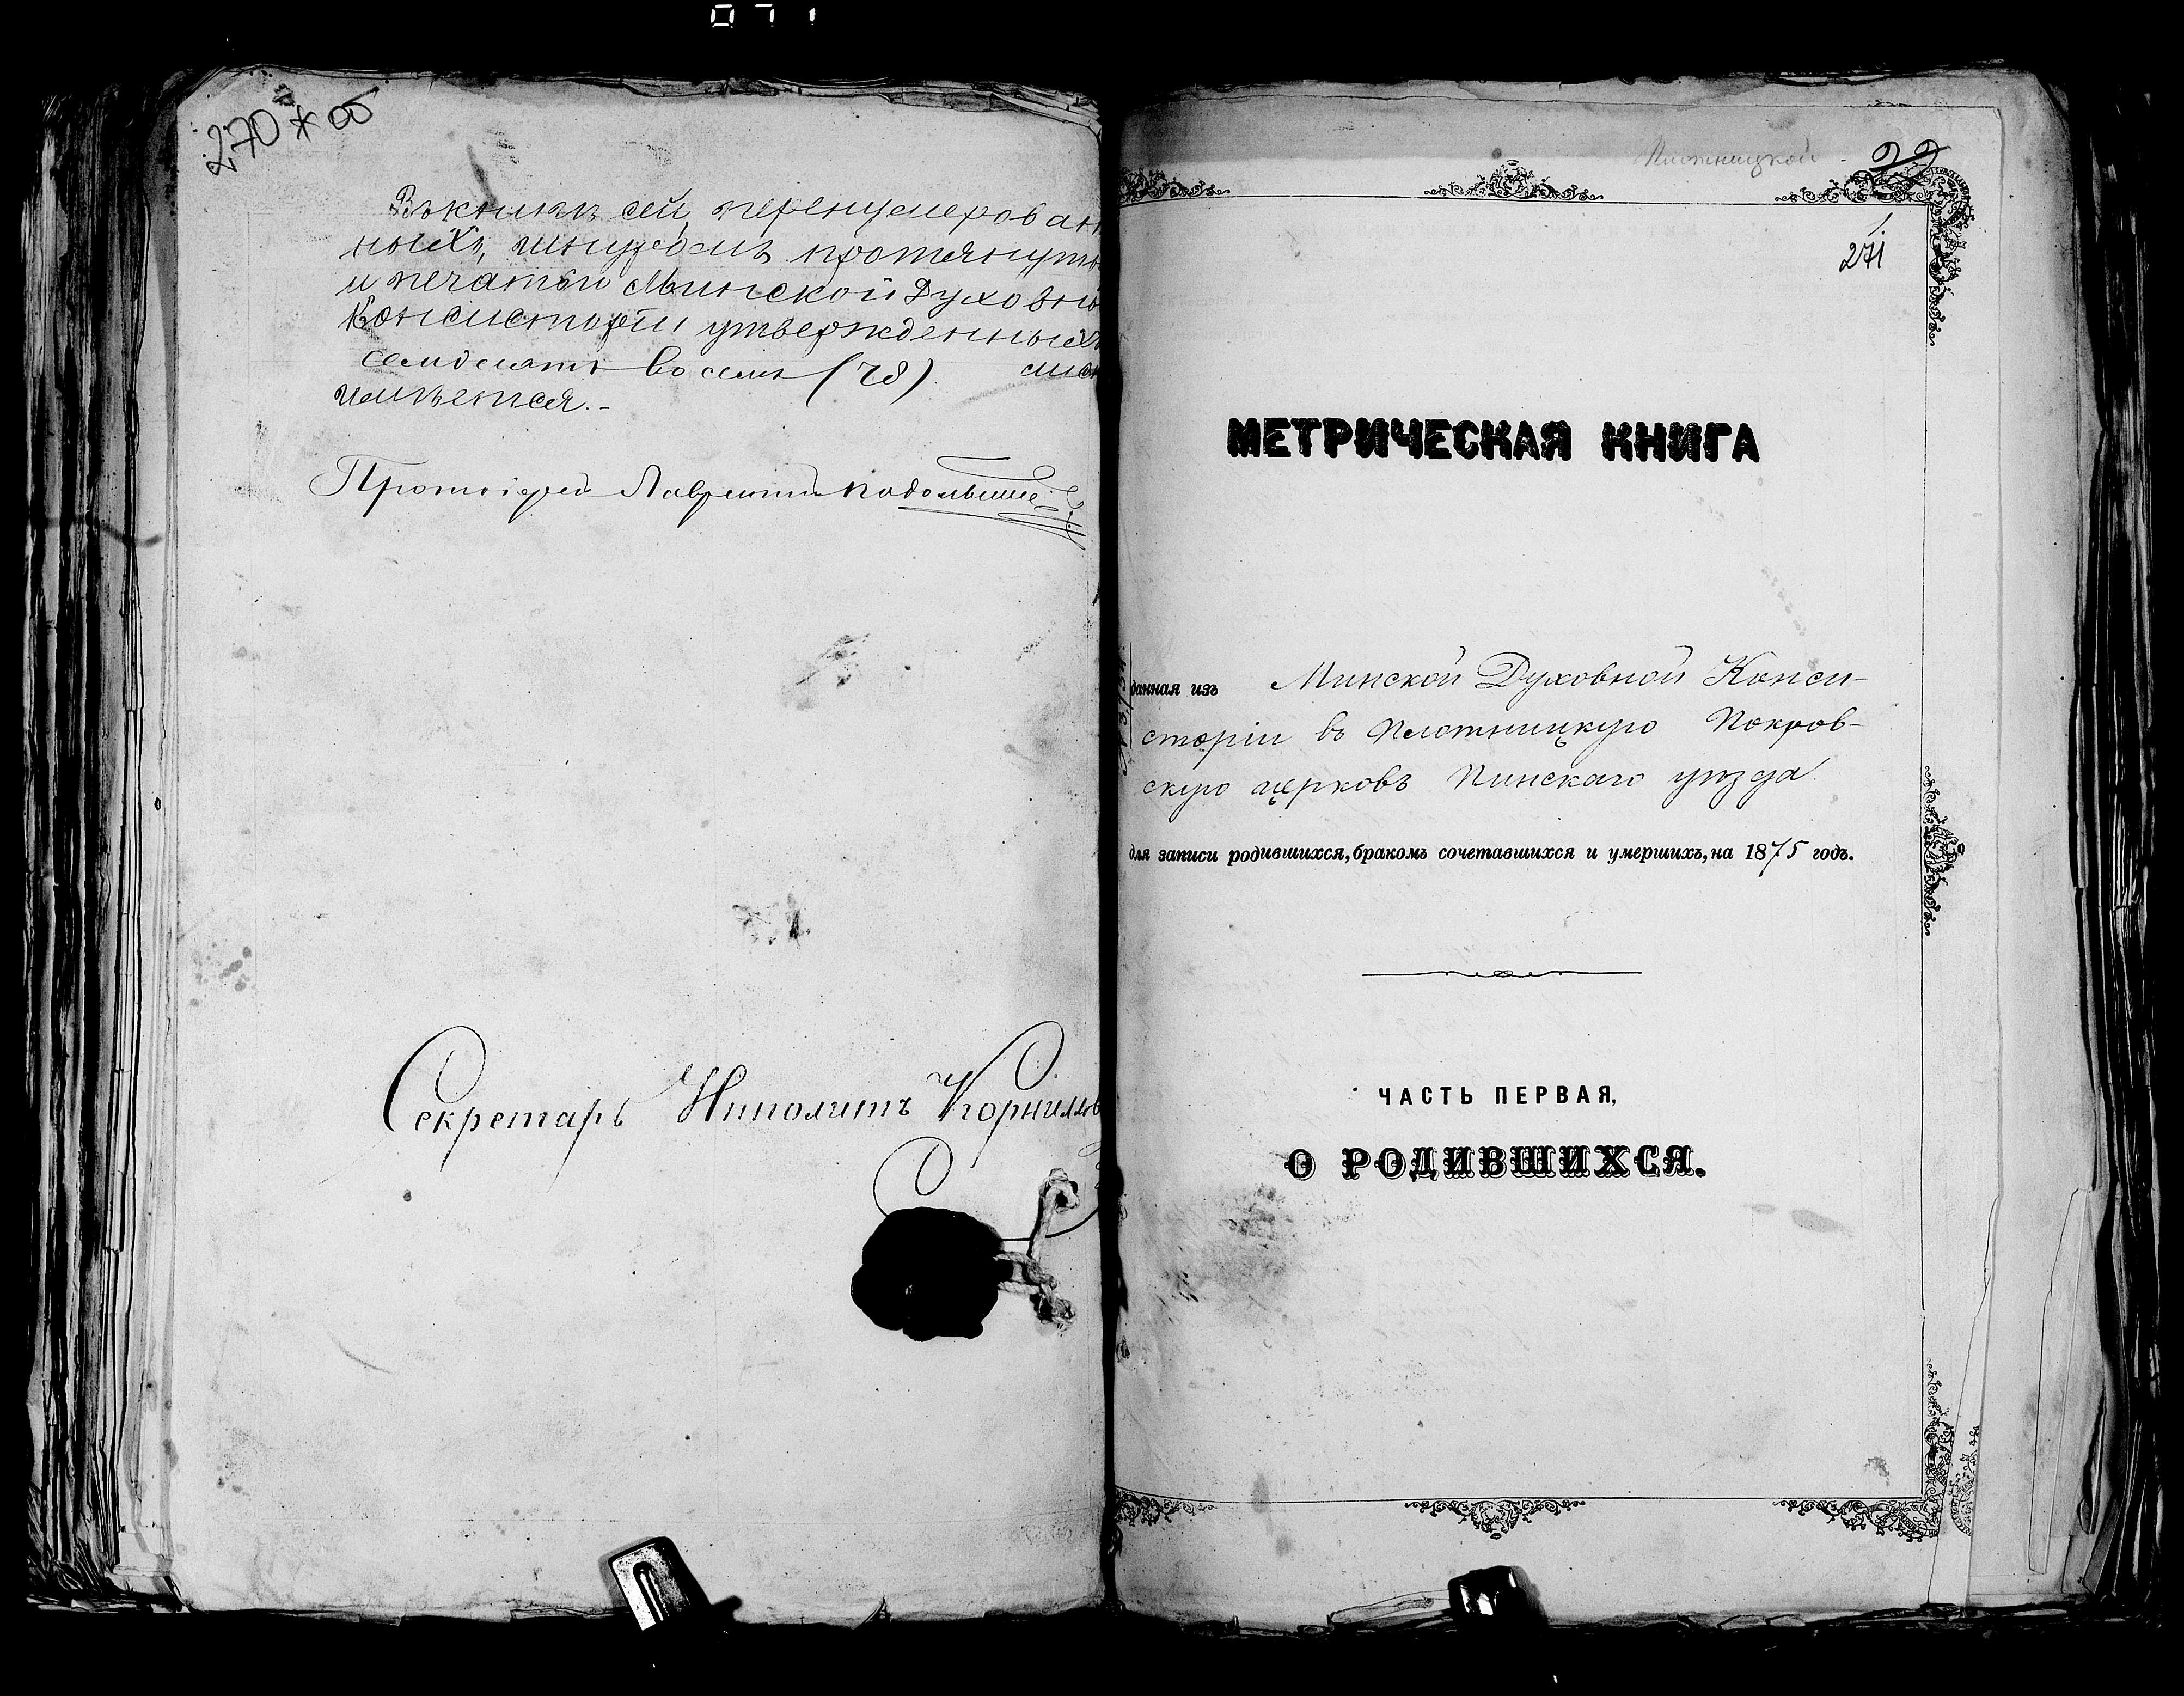 071
270 * об
Въ книгѣ сей, перенумерован
ныхъ, шнуромъ протянуты
и печатью Минской Духовно
Консисторіи утвержденныхъ
семдесятъ восемь (78). лист
имѣется.-
Протоіерей Лаврентій
Секретарь Ипполитъ Корнилов
Плотницкой - 22
1.
271
МЕТРИЧЕСКАЯ КНИГА
данная изъ Минской Духовной Конси-
сторіи въ Плотницкую Покров-
скую церковь Пинскаго уѣзда
для записи родившихся, бракомъ сочетавшихся и умершихъ, на 1875 годъ.
ЧАСТЬ ПЕРВАЯ,
О РОДИВШИХСЯ.